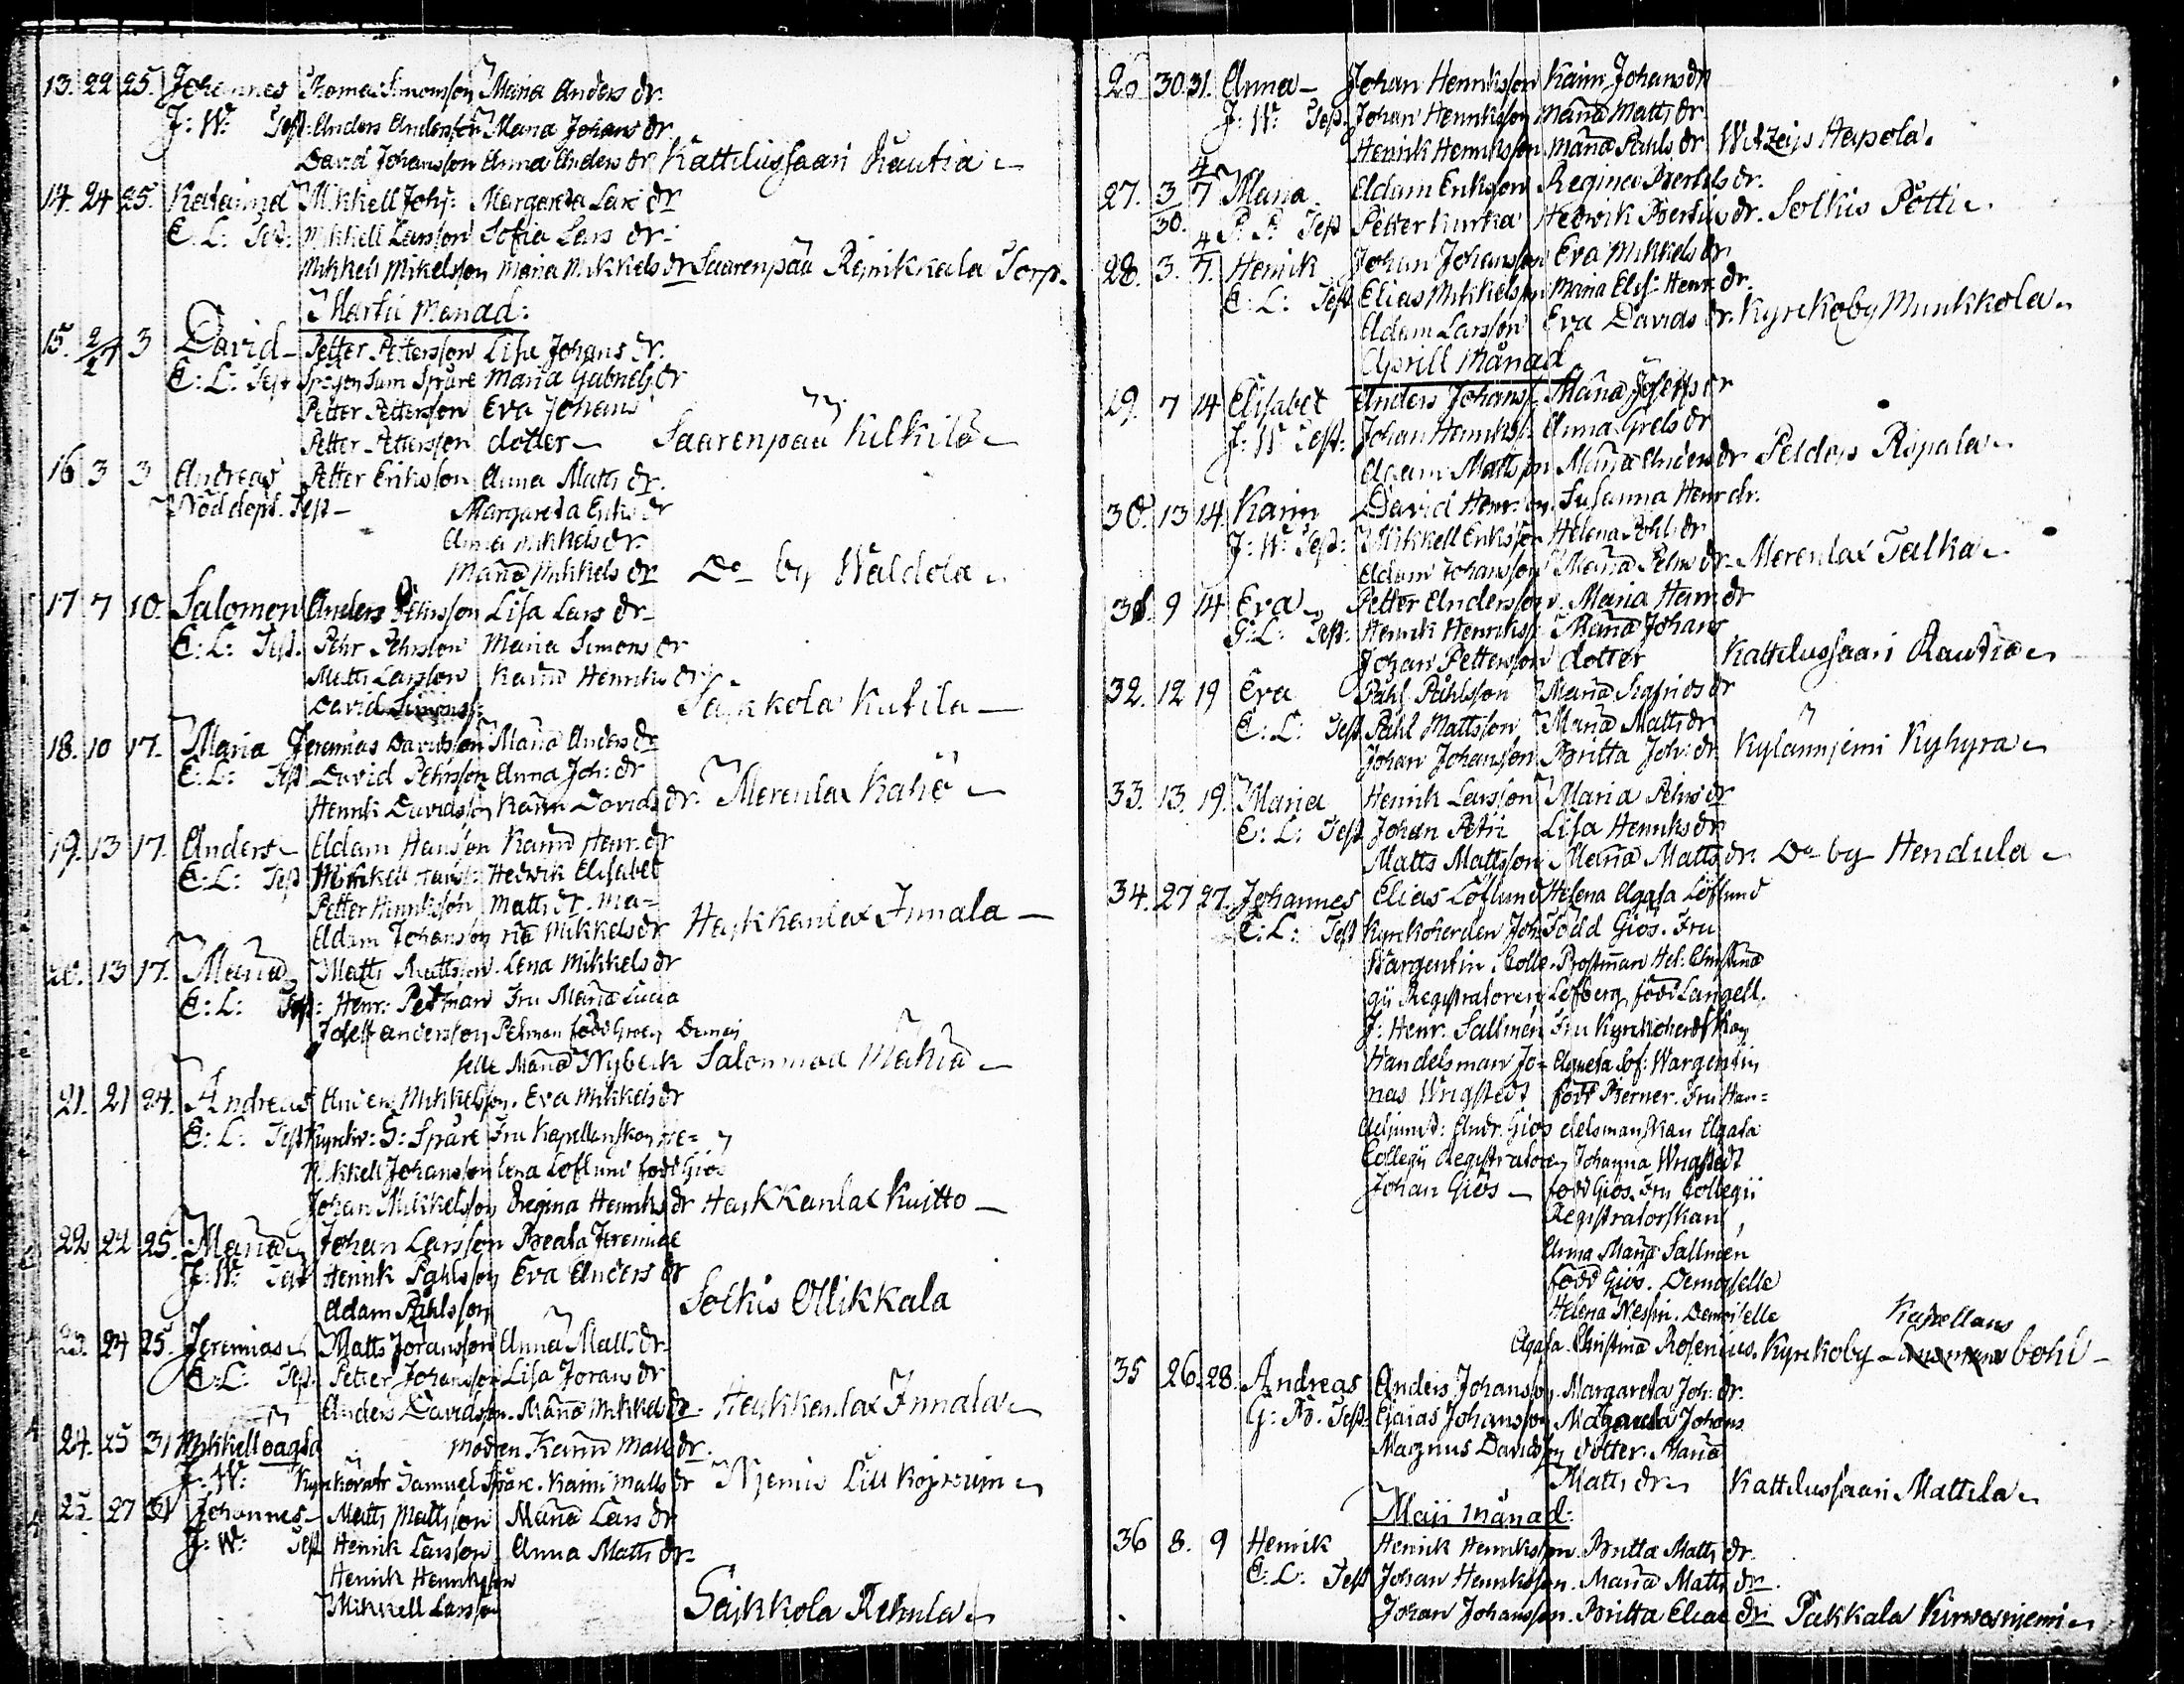 13. 22 25. Johannes Thomas Simonsson Maria Anders dr.
J: W: Test. Anders Andersson Maria Johans dr
David Johansson Anna Anders dr Kattelussaari Rautia
14. 24 25. Katarina Mikkell Johs: Margareta Lars dr
E: L: Test: Mikkell Larsson Sofia Lars dr:
Mikkell Mikelsson Maria Mikkels dr Saarenpää Reinikkala Torp.
Martii Månad:
15. 2/27 3 David Petter Pettersson Lisa Johans dr.
E: L: Test Sam Spåre Maria Gabriels dr
Petter Pettersson Eva Johans
Petter Pettersson dotter Saarenpää Kilkilä
16 3 3 Andreas Petter Eriksson Anna Matts dr.
Nöddopt. Test Margareta Eriks dr
Anna Mikkels dr.
Maria Mikkels dr Do by Waldola
17 7 10. Salomon Anders Pehrsson Lisa Lars dr
E: L: Test. Pehr Pehrsson Maria Simons dr
Matts Larsson Karin Henriks dr
David Simonss: Säkkola Kutila
18. 10 17. Maria Jeremias Davidsson Maria Anders dr
E: L: Test David Pehrsson Anna Joh: dr
Henrik Davidsson Karin Davids dr. Merenlax Kahe
19. 13 17. Anders Adam Hansson Karin Henr. dr
E: L: Test Mikkell Hans: Hedwik Elisabet
Petter Henriksson Matts dr. Ma=
Adam Johansson ria Mikkels dr Heikkenlax Innala
20. 13 17. Maria Matts Mattsson. Lena Mikkels dr
E: L: Test: Henr: Petman Fru Maria Lucia
Josef Andersson Petman född Groen Demoi
selle Maria Nybeck Salonmaa Mähiä
21. 21 24. Andreas Anders Mikkelsson. Eva Mikkels dr
E: L: Test Kyrckv: S: Spåre Fru Kapellanskan He=
Mikkell Johansson lena Löflund född Giös
Johan Mikkelsson Regina Henriks dr Heikkenlax Kuitto
22 22 25. Maria Johan Larsson Beata Jeremiae
J: W: Test Henrik Påhlsson Eva Anders dr
Adam Påhlsson Solkis Ollikkala
23. 24 25. Jeremias Matts Joransson Anna Matts dr
E: L: Test. Petter Johansson Lisa Jorans dr
Anders Davidsson. Maria Mikkels dr. Heikkenlax Innala
24. 25 31 Mikkell oägta Modren Karin Matts dr.
J: W: Kyrckovakt Samuel Spåre. Karin Matts dr Niemis
25. 27 31 Johannes Matts Mattsson Maria Lars dr
J: W: Test Henrik Larsson Anna Matts dr
Henrik Henriksson
Mikkell Larsson Säkkola Rekula
26 30 31. Anna Johan Henriksson Karin Johans dr
J: W: Test. Johan Henriksson Maria Matts dr
Henrik Henriksson Maria Påhls dr Hapola.
27. 3/30. 4/7 Maria Adam Eriksson Regina Bertils dr.
P: P: Test Petter Kurkia Hedwik Bertils dr. Solkis Pötti
28 3. 4/7. Henrik Johan Johansson Eva Mikkels dr
E: L: Test Elias Mikkelsson Maria Elis: Henr. dr.
Adam Larsson Eva Davids dr. Kyrckoby Munkkola
Aprill Månad
19. 7 14 Elisabet Anders Johanss: Maria Josefs dr
J: W Test: Johan Henrikss: Anna Grels dr
Adam Mattsson Maria Anders dr Peldois Ripala
30. 13 14 Karin David Henr:son. Susanna Henr dr.
J: W: Test: Mikkell Eriksson Helena Pohls dr
Adam Johansson Maria Pehrs dr Merenlax Talka
31. 9 14 Eva Petter Andersson. Maria Henr dr
G: L: Test: Henrik Henrikss: Maria Johans
Johan Pettersson dotter Kattelussaari Rautia
32. 12 19 Eva Påhl Påhlsson Maria Sigfrids dr
E: L: Test Påhl Mattsson Maria Matts dr
Johan Johansson Britta Joh: dr Kylänniemi Kyhyrä
33. 13. 19. Maria Henrik Larsson Maria Pehrs dr
E: L: Test Johan Petri Lisa Henriks dr
Matts Mattsson Maria Matts dr. Do by Hendula
34. 27 27. Johannes Elias Löflund Helena Agata Löflund
E: L: Test Kyrckoherden Joh. Född Giös. Fru
Wargentin. Colle= Prostinnan Hel: Christina
gii Registratoren Lefberg född Langell.
J: Henr. Sallmén Fru Kyrckoherdskan
Handelsman Jo= Agneta Sof: Wargentin
nas Wrigstedt född Berner. Fru Han=
Adjunct: Andr: Giös delsmanskan Agata
Collegii Registratoren Johanna Wrigstedt
Johan Giös född Giös. Fru Collegii
Registratorskan
Anna Maria Sallmén
född Giös. Demoiselle
Helena Nessin. Demoiselle Kapellans
Agata Christina Rosenius. Kyrckoby bohl
35 26. 28. Andreas Anders Johansson. Margareta Joh: dr.
G: B. Test: Esaias Johansson Margareta Johans
Magnus Davidsson dotter. Maria
Matts dr Kattelussaari Mattila
Maii Månad:
36 8. 9 Henrik Henrik Henriksson. Britta Matts dr
E: L: Test Johan Henriksson. Maria Matts dr.
Johan Johansson. Britta Eliae dr Pakkala Kirwesniemi